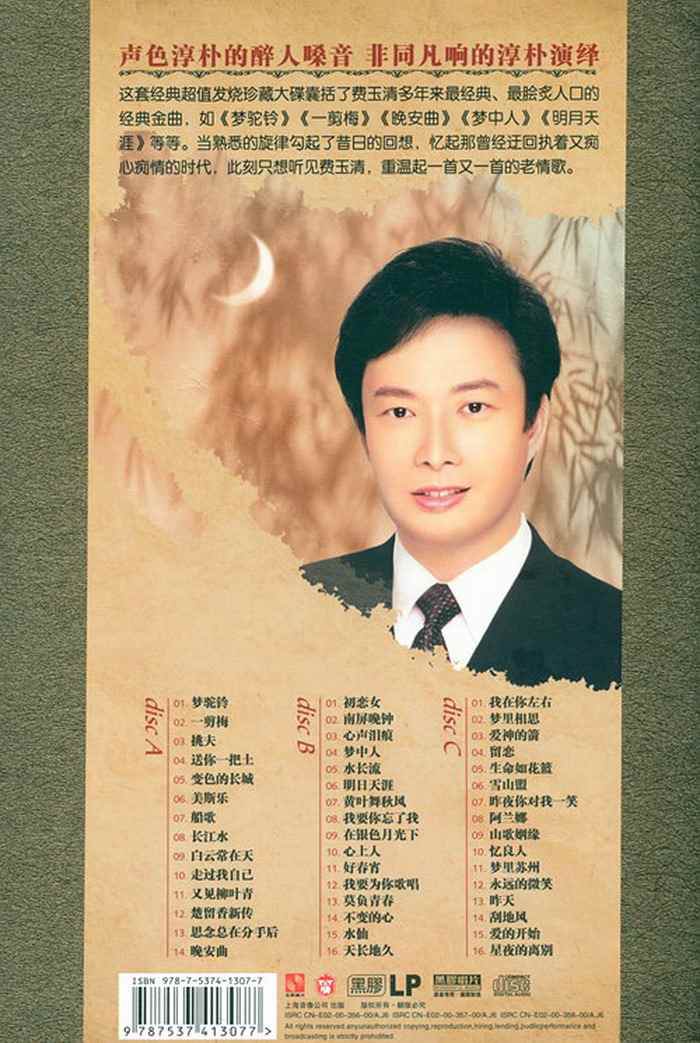 声色淳朴的醉人嗓音 非同凡响的淳朴演绎
这套经典超值发烧珍藏大碟囊括了费玉清多年来最经典、最脍炙人口的
经典金曲，如《梦驼铃》《一剪梅》《晚安曲》《梦中人》《明月天
涯》等等。当熟悉的旋律勾起了昔日的回想，忆起那曾经迂回执着又痴
心痴情的时代，此刻只想听见费玉清，重温起一首又一首的老情歌。
disc A
01. 梦驼铃
02. 一剪梅
03. 挑夫
04. 送你一把土
05. 变色的长城
06. 美斯乐
07. 船歌
08. 长江水
09. 白云常在天
10. 走过我自己
11. 又见柳叶青
12. 楚留香新传
13. 思念总在分手后
14. 晚安曲
disc B
01. 初恋女
02. 南屏晚钟
03. 心声泪痕
04. 梦中人
05. 水长流
06. 明日天涯
07. 黄叶舞秋风
08. 我要你忘了我
09. 在银色月光下
10. 心上人
11. 好春宵
12. 我要为你歌唱
13. 莫负青春
14. 不变的心
15. 水仙
16. 天长地久
disc C
01. 我在你左右
02. 梦里相思
03. 爱神的箭
04. 留恋
05. 生命如花篮
06. 雪山盟
07. 昨夜你对我一笑
08. 阿兰娜
09. 山歌姻缘
10. 忆良人
11. 梦里苏州
12. 永远的微笑
13. 昨天
14. 刮地风
15. 爱的开始
16. 星夜的离别
ISBN 978-7-5374-1307-7
9 787537 413077 >
黑膠 LP
黑膠唱片
COMPACT
disc
DIGITAL AUDIO
上海音像公司 出版 版权所有·翻版必究
ISRC CN-E02-00-356-00/A.J6 ISRC CN-E02-00-357-00/A.J6 ISRC CN-E02-00-358-00/A.J6
All rights reserved.anyunauthorized copying,reproduction,hiring,lending,pudlicperformance and
broadcasting is strictly prohibited.